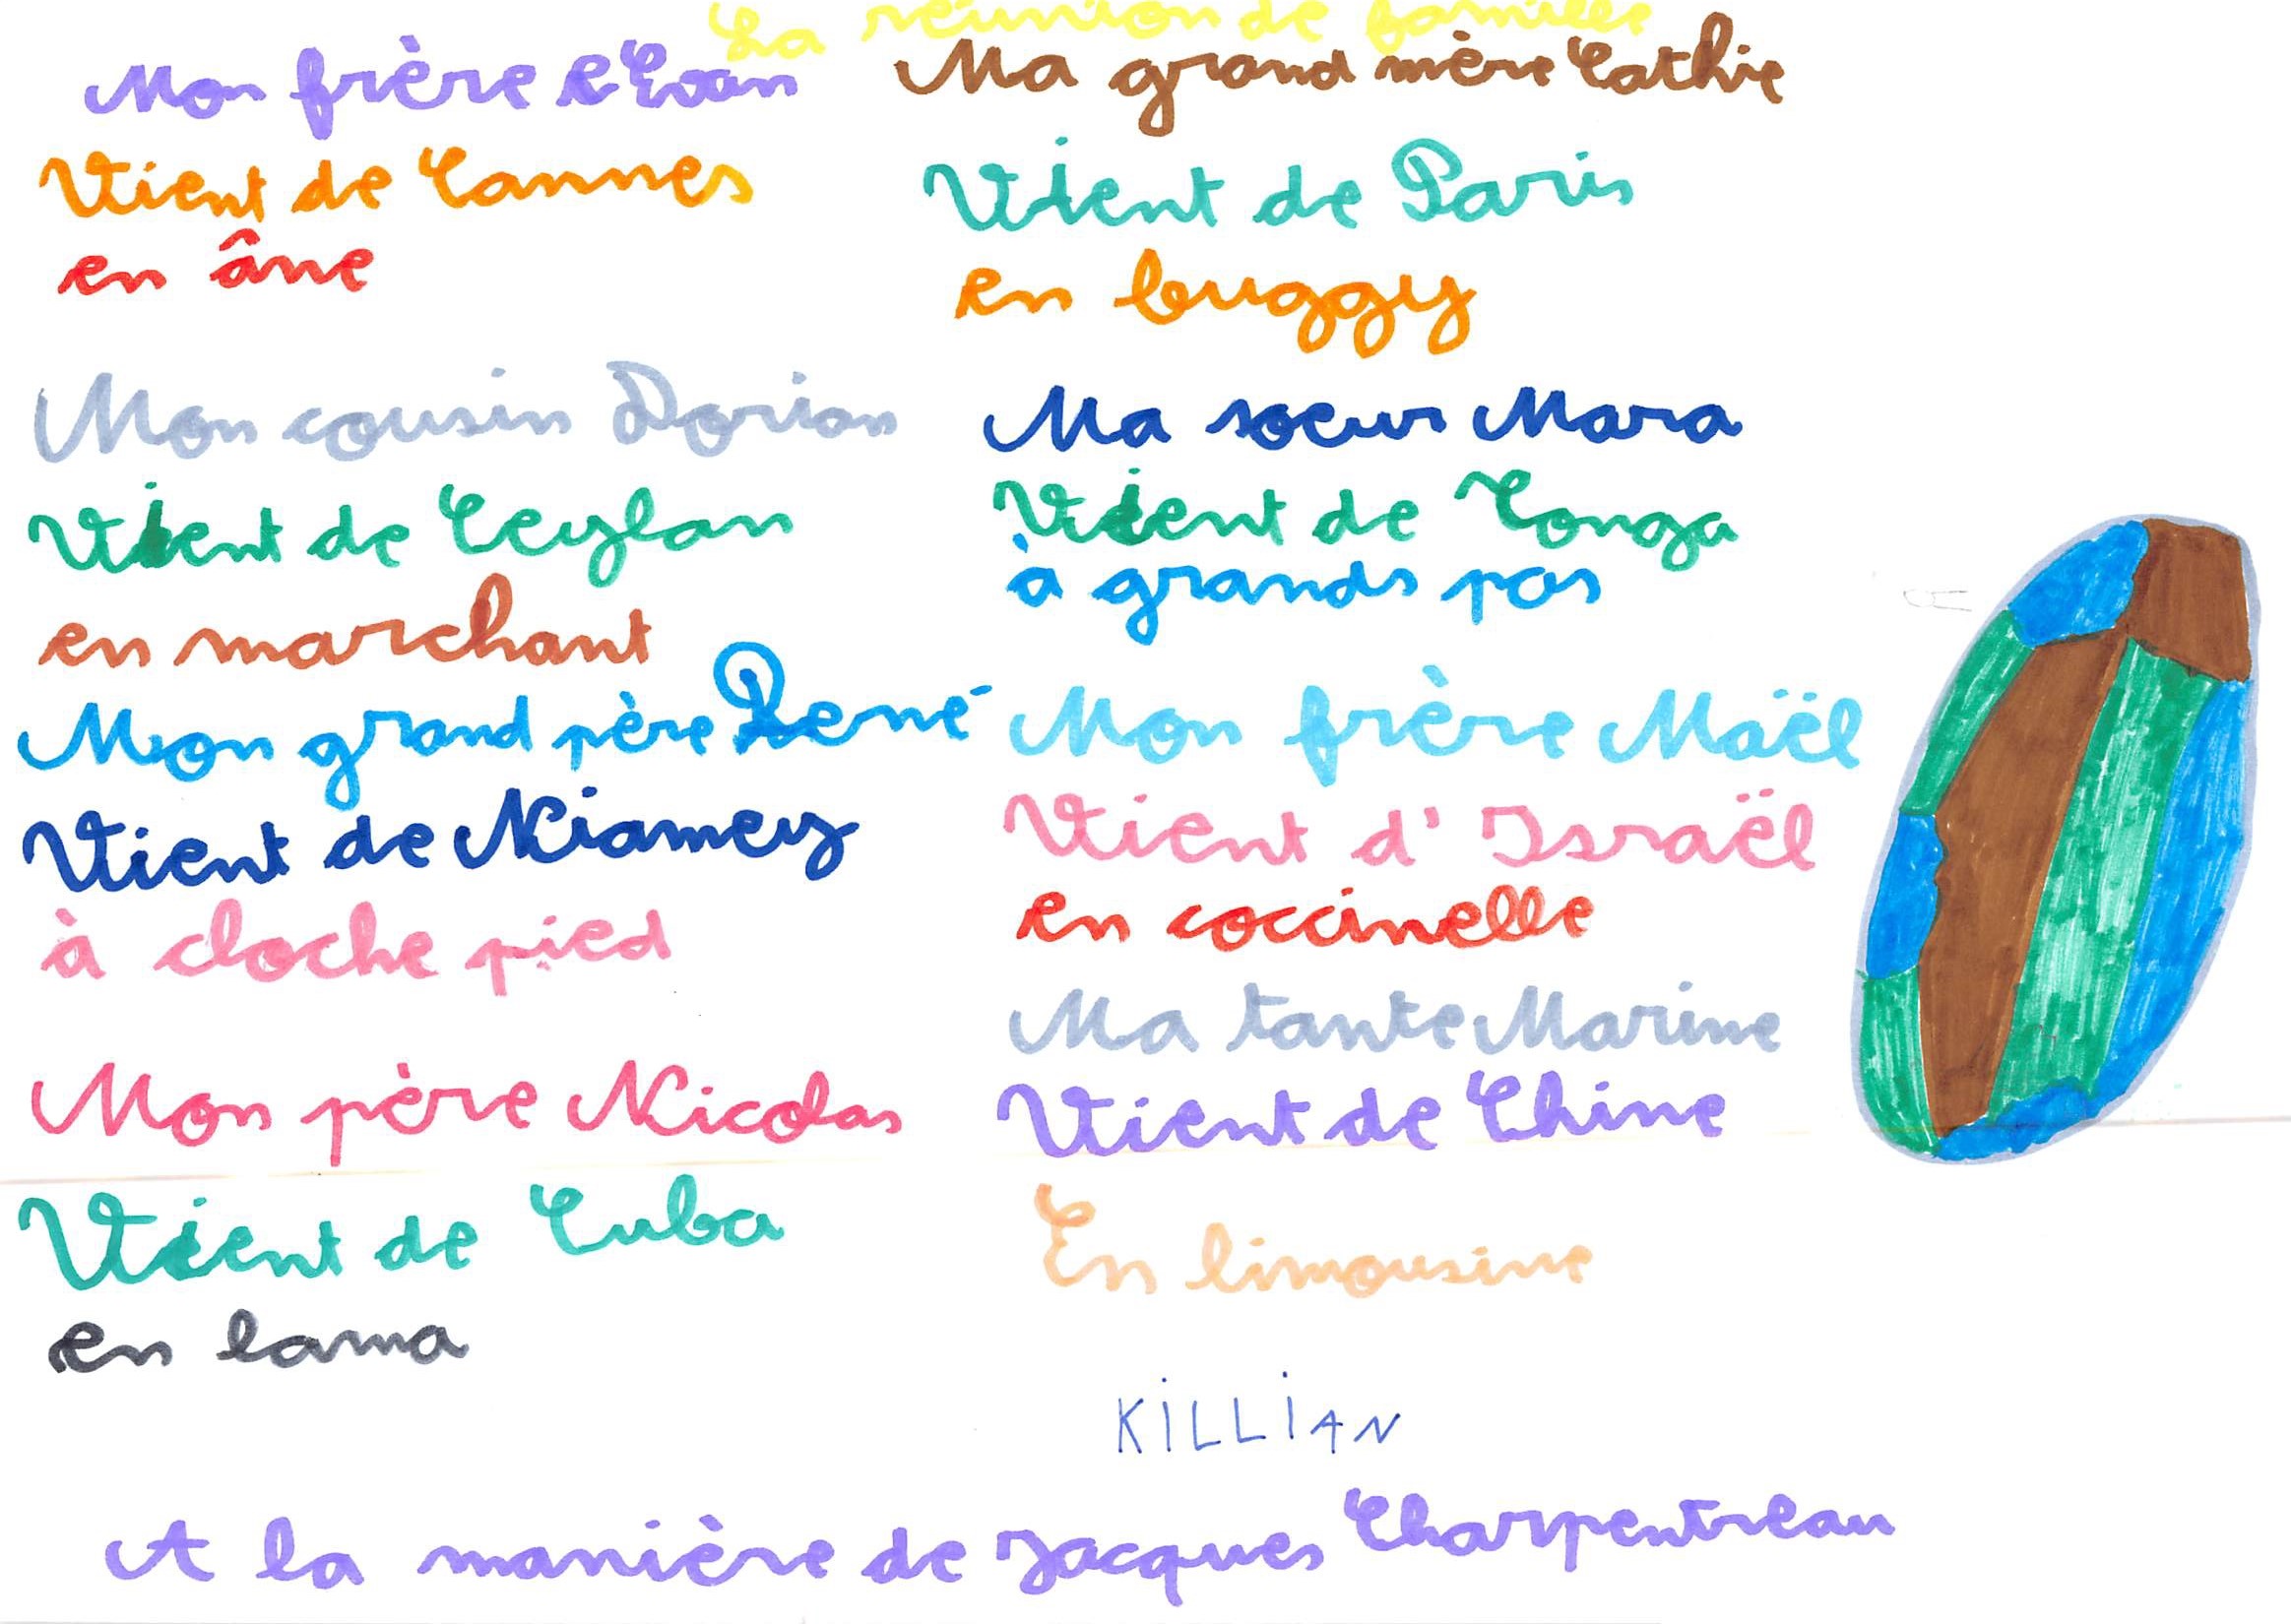 La réunion de famille
Mon frère Evan
Vient de Cannes
en âne
Mon cousin Dorian
Vient de Ceylan
en marchant
Mon grand père René
Vient de Niamey
à cloche pied
Mon père Nicolas
Vient de Cuba
en lama
Ma grand mère Cathie
Vient de Paris
en buggy
Ma soeur Mara
Vient de Tonga
à grands pas
Mon frère Maël
Vient d'Israël
en coccinelle
Ma tante Marine
Vient de Chine
En limousine
KiLLiAN
A la manière de Jacques Charpentreau